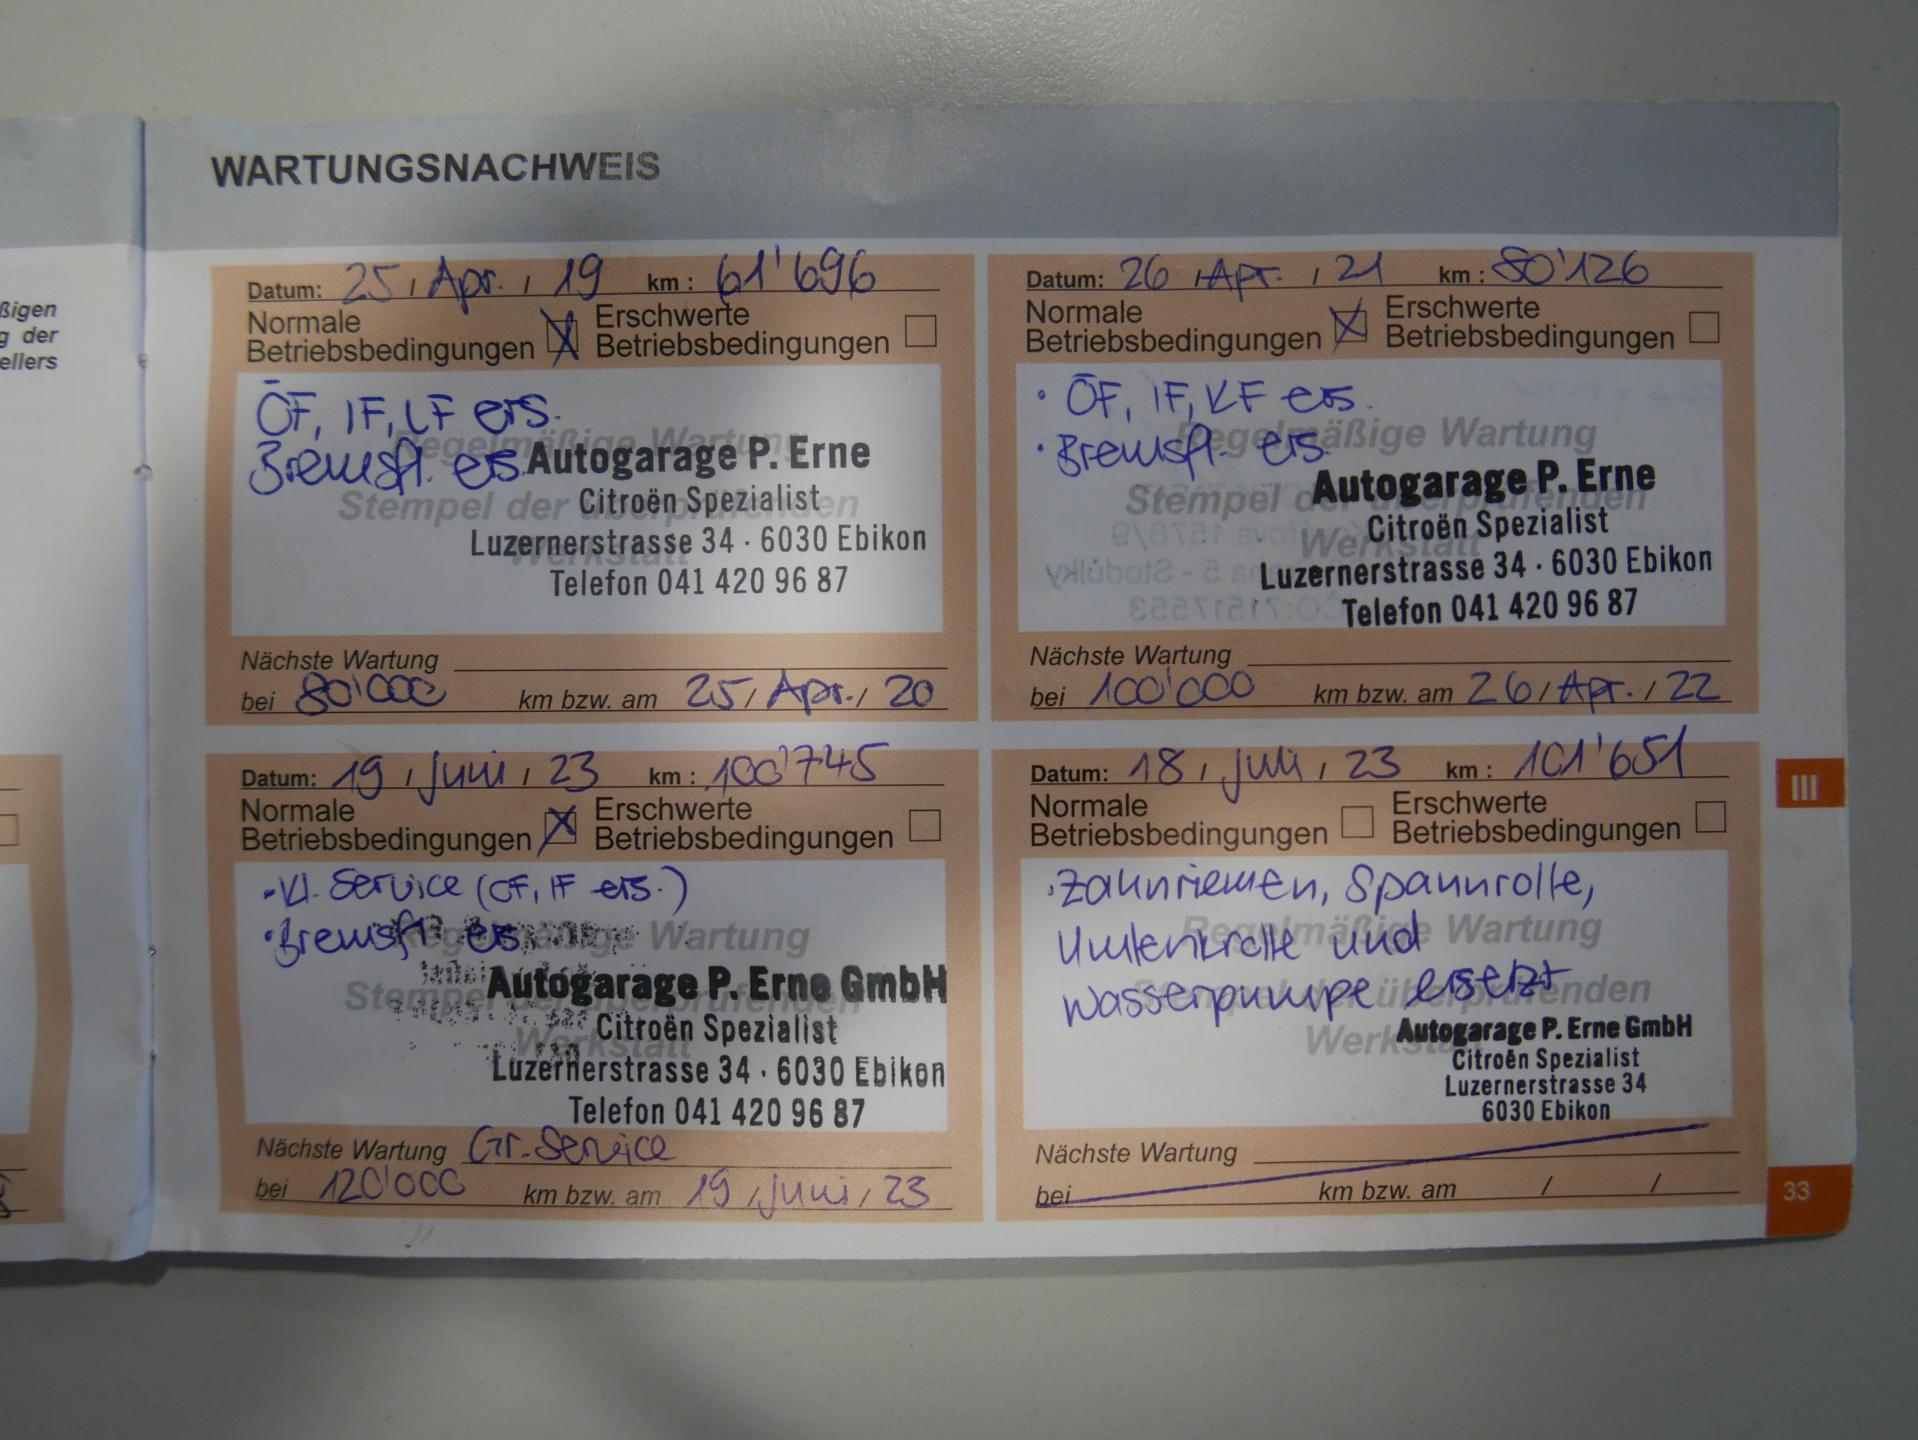 WARTUNGSNACHWEIS
ßigen
g der
ellers
Datum: 25 / Apr. / 19 km : 61'696
Normale Betriebsbedingungen X Erschwerte Betriebsbedingungen
ÖF, IF, LF ers.
Bremsfl. ers.
Regelmäßige Wartung
Stempel der überprüfenden
Werkstatt
Autogarage P. Erne
Citroën Spezialist
Luzernerstrasse 34 · 6030 Ebikon
Telefon 041 420 96 87
Nächste Wartung
bei 80'000 km bzw. am 25 / Apr. / 20
Datum: 26 / Apr. / 21 km : 80'126
Normale Betriebsbedingungen X Erschwerte Betriebsbedingungen
· ÖF, IF, KF ers.
· Bremsfl. ers.
Regelmäßige Wartung
Stempel der überprüfenden
Werkstatt
Autogarage P. Erne
Citroën Spezialist
Luzernerstrasse 34 · 6030 Ebikon
Telefon 041 420 96 87
Nächste Wartung
bei 100'000 km bzw. am 26 / Apr. / 22
Datum: 19 / Juni / 23 km : 100'745
Normale Betriebsbedingungen X Erschwerte Betriebsbedingungen
· Kl. Service (ÖF, IF ers.)
· Bremsfl. ers.
Regelmäßige Wartung
Stempel der überprüfenden
Werkstatt
Autogarage P. Erne GmbH
Citroën Spezialist
Luzernerstrasse 34 · 6030 Ebikon
Telefon 041 420 96 87
Nächste Wartung Gr. Service
bei 120'000 km bzw. am 19 / Juni / 23
Datum: 18 / Juli / 23 km : 101'651
Normale Betriebsbedingungen Erschwerte Betriebsbedingungen
· Zahnriemen, Spannrolle,
Umlenkrolle und
Wasserpumpe ersetzt
Regelmäßige Wartung
Stempel der überprüfenden
Werkstatt
Autogarage P. Erne GmbH
Citroën Spezialist
Luzernerstrasse 34
6030 Ebikon
Nächste Wartung
bei km bzw. am / /
III
33